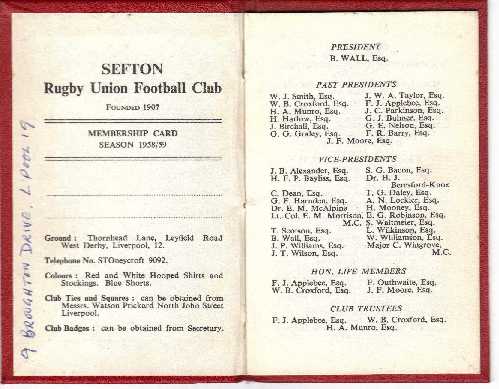 SEFTON
Rugby Union Football Club
FOUNDED 1907
MEMBERSHIP CARD
SEASON 1958/59
Ground : Thornhead Lane, Leyfield Road
West Derby, Liverpool, 12.
Telephone No. STOneycroft 9092.
Colours : Red and White Hooped Shirts and
Stockings. Blue Shorts.
Club Ties and Squares : can be obtained from
Messrs. Watson Prickard North John Street
Liverpool.
Club Badges : can be obtained from Secretary.
9 BROUGHTON DRIVE, L POOL 19
PRESIDENT
B. WALL, Esq.
PAST PRESIDENTS
W. J. Smith, Esq. J. W. A. Taylor, Esq.
W. B. Croxford, Esq. F. J. Applebee, Esq.
H. A. Munro, Esq. J. C. Parkinson, Esq.
H. Harlow, Esq. G. J. Bulmer, Esq.
J. Birchall, Esq. G. E. Nelson, Esq.
O. G. Greley, Esq. F. R. Barry, Esq.
J. F. Moore, Esq.
VICE-PRESIDENTS
J. B. Alexander, Esq. S. G. Bacon, Esq.
H. F. P. Bayliss, Esq. Dr. H. J.
Beresford-Knox
C. Dean, Esq. T. G. Daley, Esq.
G. F. Harnden, Esq. A. N. Lockier, Esq.
Dr. E. M. McAlpine H. Mooney, Esq.
Lt. Col. E. M. Morrison, E. G. Robinson, Esq.
M.C. S. Waltmeier, Esq.
T. Saxeson, Esq. L. Wilkinson, Esq.
B. Wall, Esq. W. Williamson, Esq.
J. P. Williams, Esq. Major C. Wingrove,
J. T. Wilson, Esq. M.C.
HON. LIFE MEMBERS
F. J. Applebee, Esq. P. Outhwaite, Esq.
W. B. Croxford, Esq. J. F. Moore, Esq.
CLUB TRUSTEES
F. J. Applebee, Esq. W. B. Croxford, Esq.
H. A. Munro, Esq.